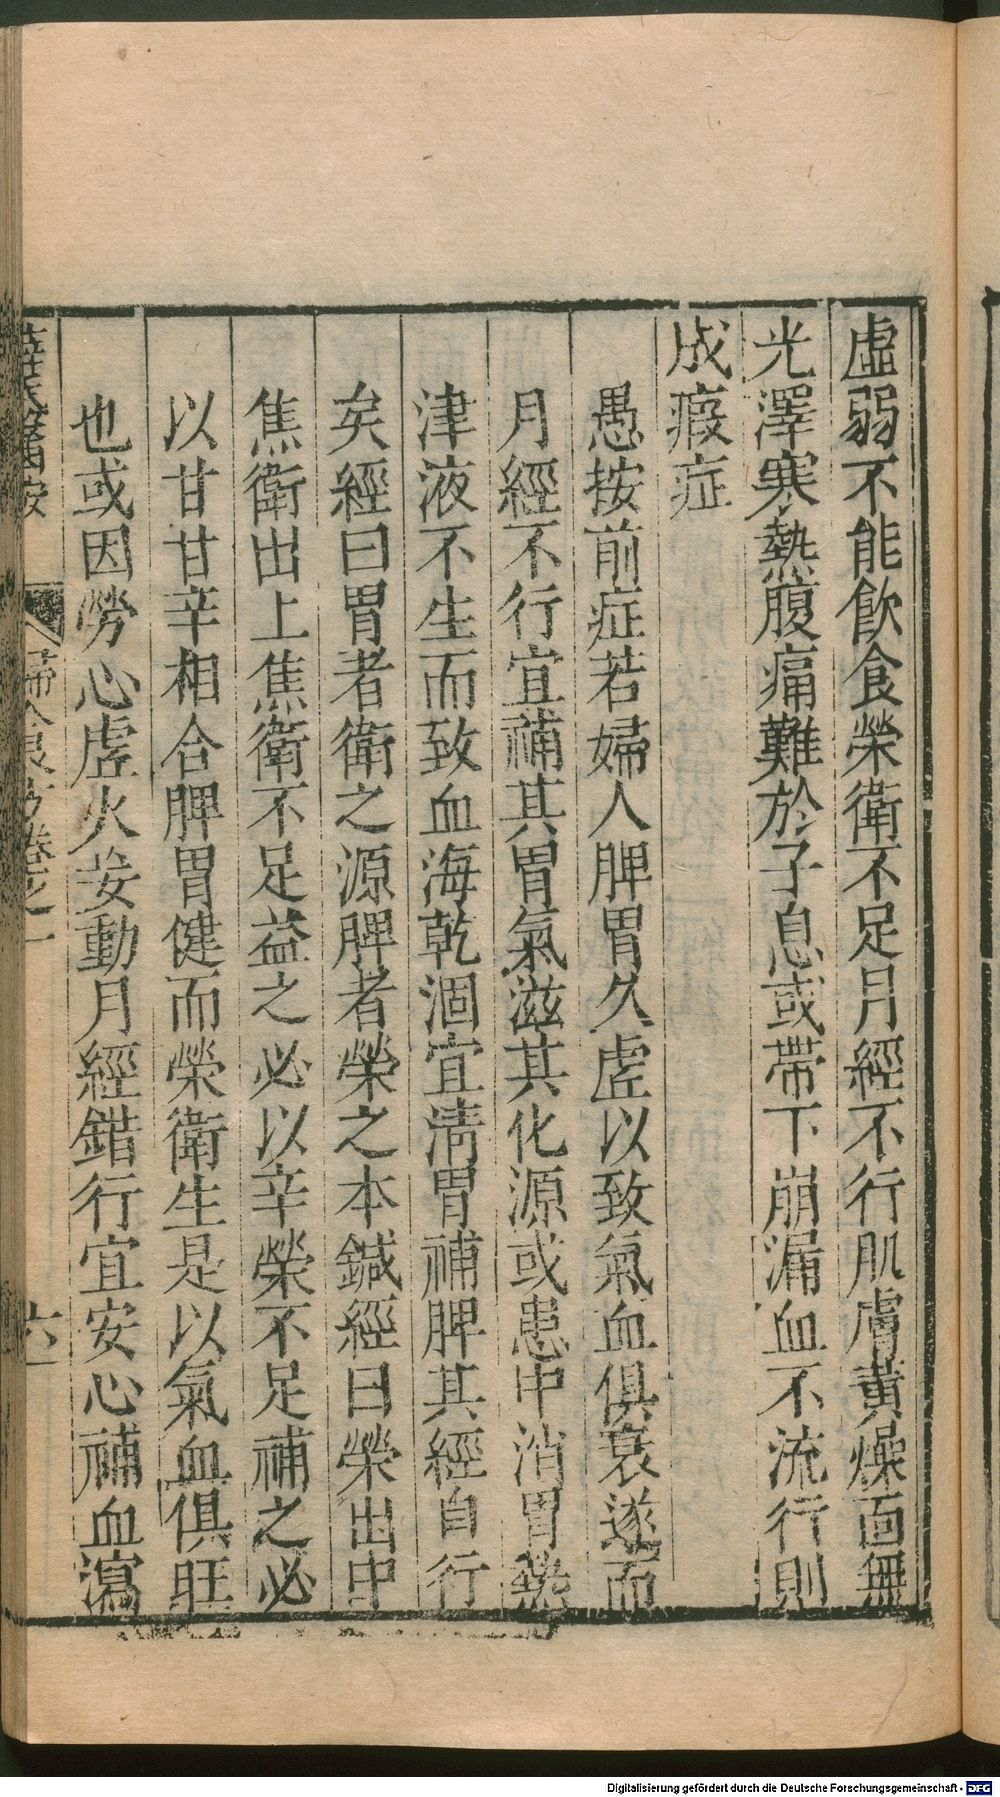 虛弱不能飲食榮衛不足月經不行肌膚黃燥面無
光澤寒熱腹痛難於子息或帶下崩漏血不流行則
成瘕症
愚按前症若婦人脾胃久虛以致氣血俱衰遂而
月經不行宜補其胃氣滋其化源或患中消胃熱
津液不生而致血海乾涸宜淸胃補脾其經自行
矣經曰胃者衛之源脾者榮之本鍼經曰榮出中
焦衛出上焦衛不足益之必以辛榮不足補之必
以甘甘辛相合脾胃健而榮衛生是以氣血俱旺
也或因勞心虛火妄動月經錯行宜安心補血瀉
薛氏醫按 婦人良方卷之一 六
Digitalisierung gefördert durch die Deutsche Forschungsgemeinschaft - DFG